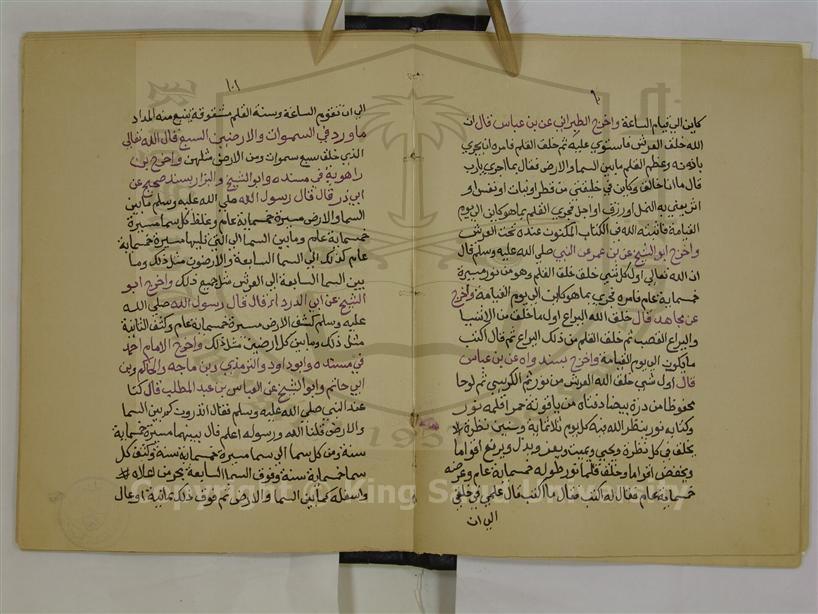 ١٠
كاين الي قيام الساعة واخرج الطبراني عن بن عباس قال ان
الله خلق العرش فاستوي عليه ثم خلق القلم فامره ان يجري
باذنه وعظم القلم مابين السما والارض فقال بما اجري يارب
قال بما انا خالق وكاين في خلقي من قطر او نبات او نفس او
اثر يعني به العمل او رزق او اجل فجري القلم بما هو كاين الي يوم
القيامة فاثبته الله في الكتاب المكنون عنده تحت العرش
واخرج ابو الشيخ عن بن عمر عن النبي صلي الله عليه وسلم قال
ان الله تعالي اول كل شي خلق خلق القلم وهو من نور مسيرة
خمسماية عام فامره فجري بما هو كاين الي يوم القيامة واخرج
عن مجاهد قال خلق الله اليراع اول ما خلق من الاشيا
واليراع القصب ثم خلق القلم من ذلك اليراع ثم قال اكتب
ما يكون الي يوم القيامة واخرج بسند واه عن بن عباس
قال اول شي خلق الله العرش من نور ثم الكرسي ثم لوحا
محفوظا من درة بيضا دفتاه من ياقوتة حمرا قلمه نور
وكتابه نور ينظر الله فيه كل يوم ثلاثماية وستين نظرة
يخلق في كل نظرة ويحيي ويميت ويعز ويذل ويرفع اقواما
ويخفض اقواما وخلق قلما من نور طوله خمسماية عام وعرضه
خمسماية عام فقال له اكتب فقال ما اكتب قال علمي في خلقي
الي ان
١٠١
الي ان تقوم الساعة وسنه القلم مشقوقة ينبع منه المداد
ما ورد في السموات والارضين السبع قال الله تعالي
الذي خلق سبع سموات ومن الارض مثلهن واخرج بن
راهوية في مسنده وابو الشيخ والبزار بسند صحيح عن
ابي ذر قال قال رسول الله صلي الله عليه وسلم ما بين
السما والارض مسيرة خمسماية عام وغلظ كل سما مسيرة
خمسماية عام وما بين السما الي التي تليها مسيرة خمسماية
عام كذلك الي السما السابعة والارضون مثل ذلك وما
بين السما السابعة الي العرش مثل جميع ذلك واخرج ابو
الشيخ عن ابي الدرداء قال قال رسول الله صلي الله
عليه وسلم كثف الارض مسيرة خمسماية عام وكثف الثانية
مثل ذلك وما بين كل ارضين مثل ذلك واخرج الامام احمد
في مسنده وابو داود والترمذي وبن ماجه والحاكم وبن
ابي حاتم وابو الشيخ عن العباس بن عبد المطلب قال كنا
عند النبي صلي الله عليه وسلم فقال اتدرون كم بين السما
والارض قلنا الله ورسوله اعلم قال بينهما مسيرة خمسماية
سنة ومن كل سما الي سما مسيرة خمسماية سنة وكثف كل
سما خمسماية سنة وفوق السما السابعة بحر من اعلاه
واسفله كما بين السما والارض ثم فوق ذلك ثمانية اوعال
Copyright © King Saud University
1957